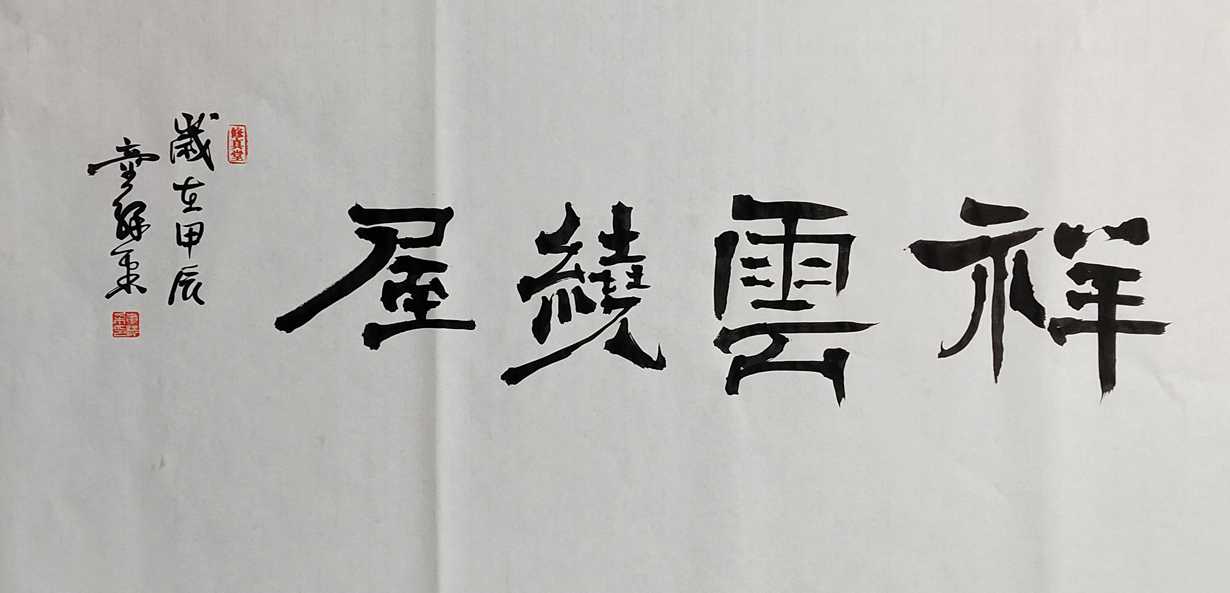 祥雲繞屋
歲在甲辰
童
修真堂